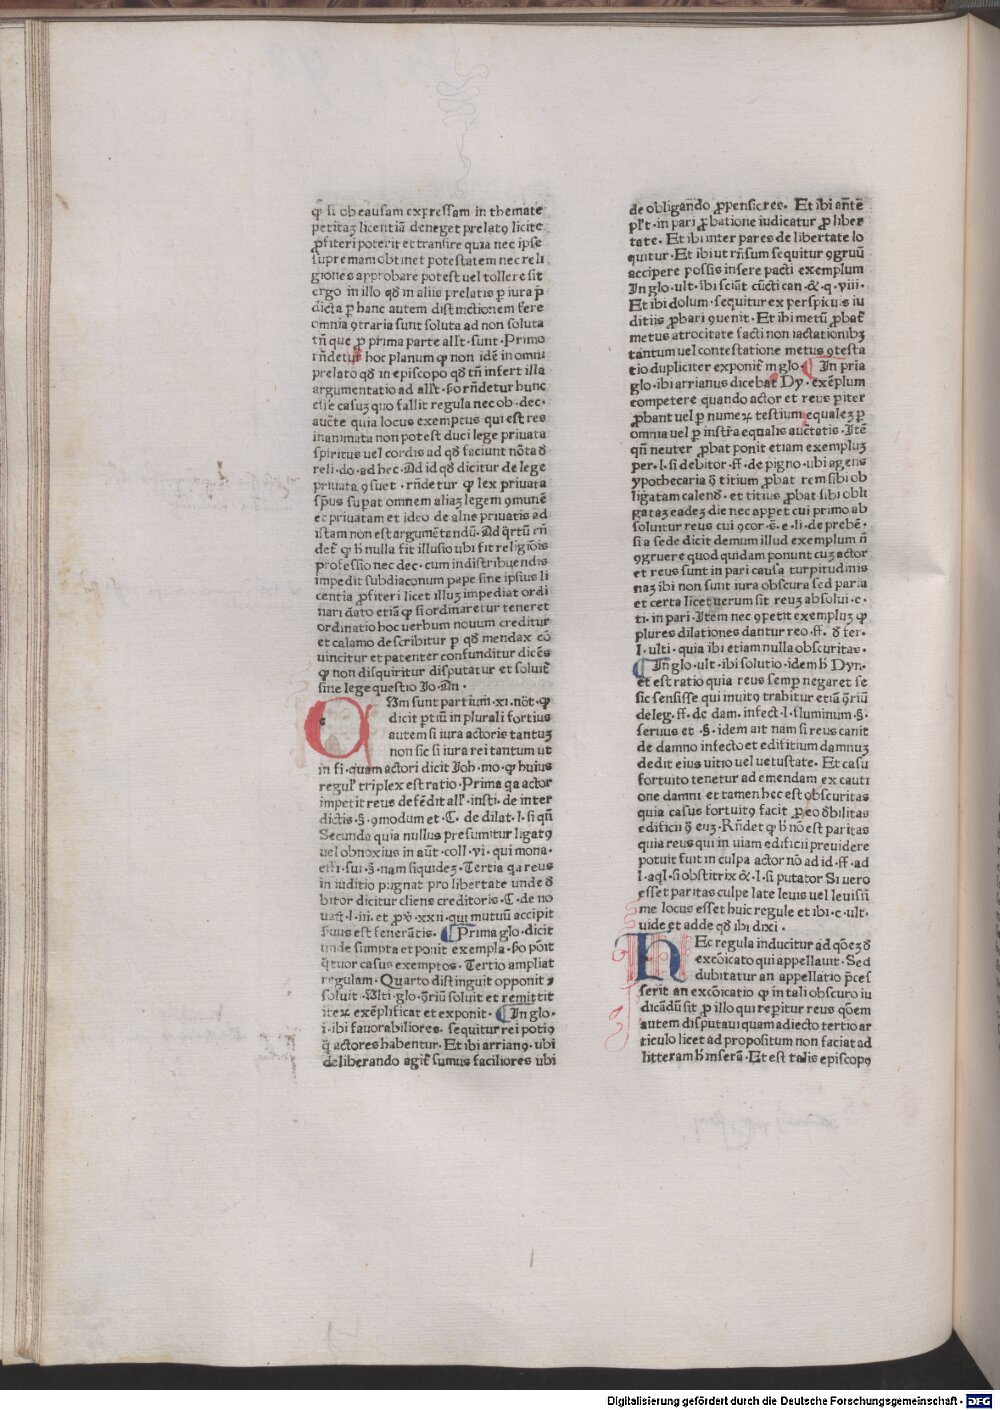 ꝙ si ob causam expressam in themate
petitaꝫ licentiā deneget prelatꝯ licite
ꝓfiteri poterit et transire quia nec ipse
supremam obtinet potestatem nec reli
giones approbare potest uel tollere sit
ergo in illo qð in aliis prelatis ꝑ iura p̄
dicta ꝑ hanc autem distinctionem fere
omnia ꝯtraria sunt soluta ad non soluta
tn̄ que ꝓ prima parte all't · sunt · Primo
rn̄detur hoc planum ꝙ non idē in omni
prelato qð in episcopo qð tn̄ infert illa
argumentatio ad all't · ẜo rn̄detur hunc
esse casuꝫ quo fallit regula nec ob · dec ·
aucte quia locus exemptus qui est res
inanimata non potest duci lege priuata
spiritus uel cordis ad qð faciunt nōta ð
reli · do · ad hec · Ad id qð dicitur de lege
priuata ꝯsuet · rn̄detur ꝙ lex priuata
sp̄us supat omnem aliaꝫ legem ꝯmunē
et priuatam et ideo de aliis priuatis ad
istam non est argumētandū · Ad q̄rtū rn̄
det̄ ꝙ h̄ nulla fit illusio ubi fit religiōis
professio nec dec · cum in distribuendis
impedit subdiaconum pape sine ipsius li
centia ꝓfiteri licet illuꝫ impediat ordi
nari dato etiā ꝙ si ordinaretur teneret
ordinatio hoc uerbum nouum creditur
et calamo describitur ꝑ qð mendax cō
uincitur et patenter confunditur dicēs
ꝙ non disquiritur disputatur et soluit̄
sine lege questio Jo · An ·
CUm sunt partium · xi · nōt · ꝙ
dicit ꝑtiū in plurali fortius
autem si iura actoris tantuꝫ
non sic si iura rei tantum ut
in fi · quam actori dicit Joh · mo · ꝙ huius
regul' triplex est ratio · Prima qa actor
impetit reus defēdit all' · insti · de inter
dictis · §. ꝯmodum et · C · de dilat · l · si qn̄
Secunda quia nullus presumitur ligatꝯ
uel obnoxius in aūt · coll · vi · qui mona ·
essi · sui · §. nam siquideꝫ · Tertia qa reus
in iuditio pugnat pro libertate unde ð
bitor dicitur cliens creditoris · C · de no
uat̄ · l · iii · et ꝓv̄ · xxii · qui mutuū accipit
ẜuus est fenerātis · Prima glo · dicit
unde sumpta et ponit exempla · ẜo pōit
q̄tuor casus exemptos · Tertio ampliat
regulam · Quarto distinguit opponit ⁊
soluit · Vlti · glo · ꝯ̄riū soluit et remittit
iteꝝ exēplificat et exponit · In glo ·
i · ibi fauorabiliores · sequitur rei potiꝯ
q̄ actores habentur · Et ibi arrianꝯ · ubi
de liberando agit̄ sumus faciliores ubi
de obligando ꝓpensiores · Et ibi an̄tē
pl't · in pari ꝓbatione iudicatur ꝓ liber
tate · Et ibi inter pares de libertate lo
quitur · Et ibi ut rn̄sum sequitur ꝯgruū
accipere possis insere pacti exemplum
In glo · ult · ibi sciūt cūcti can · & · q · viii ·
Et ibi dolum · sequitur ex perspicuis iu
ditiis ꝓbari ꝯuenit · Et ibi metū ꝓbat̄
metus atrocitate facti non iactationibꝫ
tantum uel contestatione metus ꝯtesta
tio dupliciter exponit̄ in glo · In pria
glo · ibi arrianus dicebat Dy · exēplum
competere quando actor et reus piter
ꝓbant uel ꝑ numeꝝ testium equaleꝫ ꝑ
omnia uel ꝑ instra equalis auctatis · Itē
qn̄ neuter ꝓbat ponit etiam exempluꝫ
per · l · si debitor · ff · de pigno · ubi agens
ypothecaria ꝯ̄ titium ꝓbat rem sibi ob
ligatam calend · et titius ꝓbat sibi obli
gataꝫ eadeꝫ die nec appet cui primo ab
soluitur reus cui ꝯcor · ē · e · li · de prebē ·
si a sede dicit demum illud exemplum n̄
ꝯgruere quod quidam ponunt cuꝫ actor
et reus sunt in pari causa turpitudinis
naꝫ ibi non sunt iura obscura sed paria
et certa licet uerum sit reuꝫ absolui · e ·
ti · in pari · Item nec ꝯpetit exempluꝫ ꝙ
plures dilationes dantur reo · ff · ð fer ·
l · ulti · quia ibi etiam nulla obscuritas ·
In glo · ult · ibi solutio · idem h̄ Dyn ·
et est ratio quia reus semp negaret se
sic sensisse qui inuito trahitur etiā ꝯ̄riū
de leg · ff · de dam · infect · l · fluminum · §.
seruus et · §. idem ait nam si reus canit
de damno infecto et edifitium damnuꝫ
dedit eius uitio uel uetustate · Et casu
fortuito tenetur ad emendam ex cauti
one damni et tamen hec est obscuritas
quia casus fortuitꝯ facit ꝓ eo ðbilitas
edificii ꝯ̄ euꝫ · Rn̄det ꝙ h̄ nō est paritas
quia reus qui in uiam edificii preuidere
potuit fuit in culpa actor nō ad id · ff · ad
l · aql · si obstitrix & · l · si putator Si uero
esset paritas culpe late leuis uel leuissi
me locus esset huic regule et ibi · c · ult ·
uide et adde qð ibi dixi ·
HEc regula inducitur ad qōeꝫ ð
excōicato qui appellauit · Sed
dubitatur an appellatio p̄ces
serit an excōicatio ꝙ in tali obscuro iu
dicādū sit ꝓ illo qui repitur reus qōem
autem disputaui quam adiecto tertio ar
ticulo licet ad propositum non faciat ad
litteram h̄ inserā · Et est talis episcopꝯ
Digitalisierung gefördert durch die Deutsche Forschungsgemeinschaft - DFG